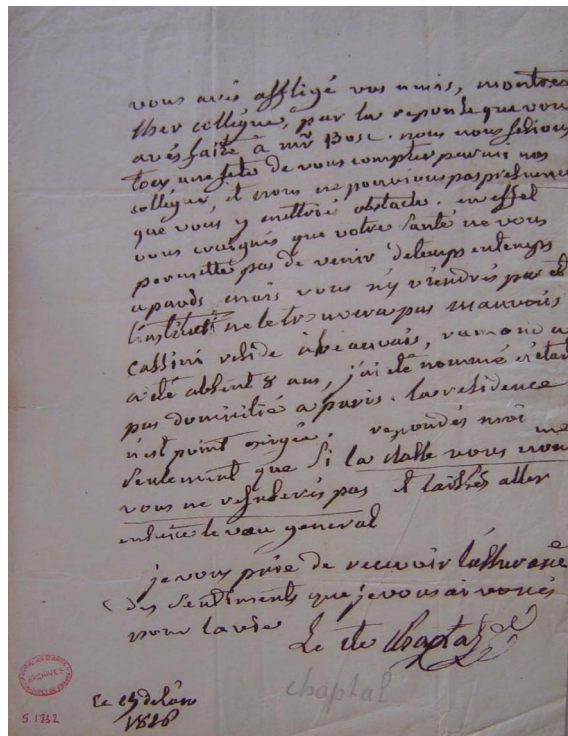 vous avés affligé vos amis, mon tres
cher collégue, par la reponse que vous
avés faite à mr Bosc. nous nous felions
tous une fete de vous compter parmi nos
collégues, et nous ne pouvions pas présumer
que vous y mettrié obstacle. en effet
vous craignés que votre santé ne vous
permette pas de venir de temps en temps
a paris mais vous n'y viendrés pas et
l'institut ne le trouvera pas mauvais
cassini reside à beauvais, ramond a
été absent 8 ans, j'ai été nommé n'étant
pas domicilié a paris. la residence
n'est point exigée. repondés moi
seulement que si la classe vous nomme
vous ne refuserés pas et laissés aller
ensuite le vœu general
je vous prie de recevoir l'assurance
des sentiments que je vous ai voués
pour la vie
Le cte Chaptal
chaptal
Le
1816
ARCHIVES
S. 1352